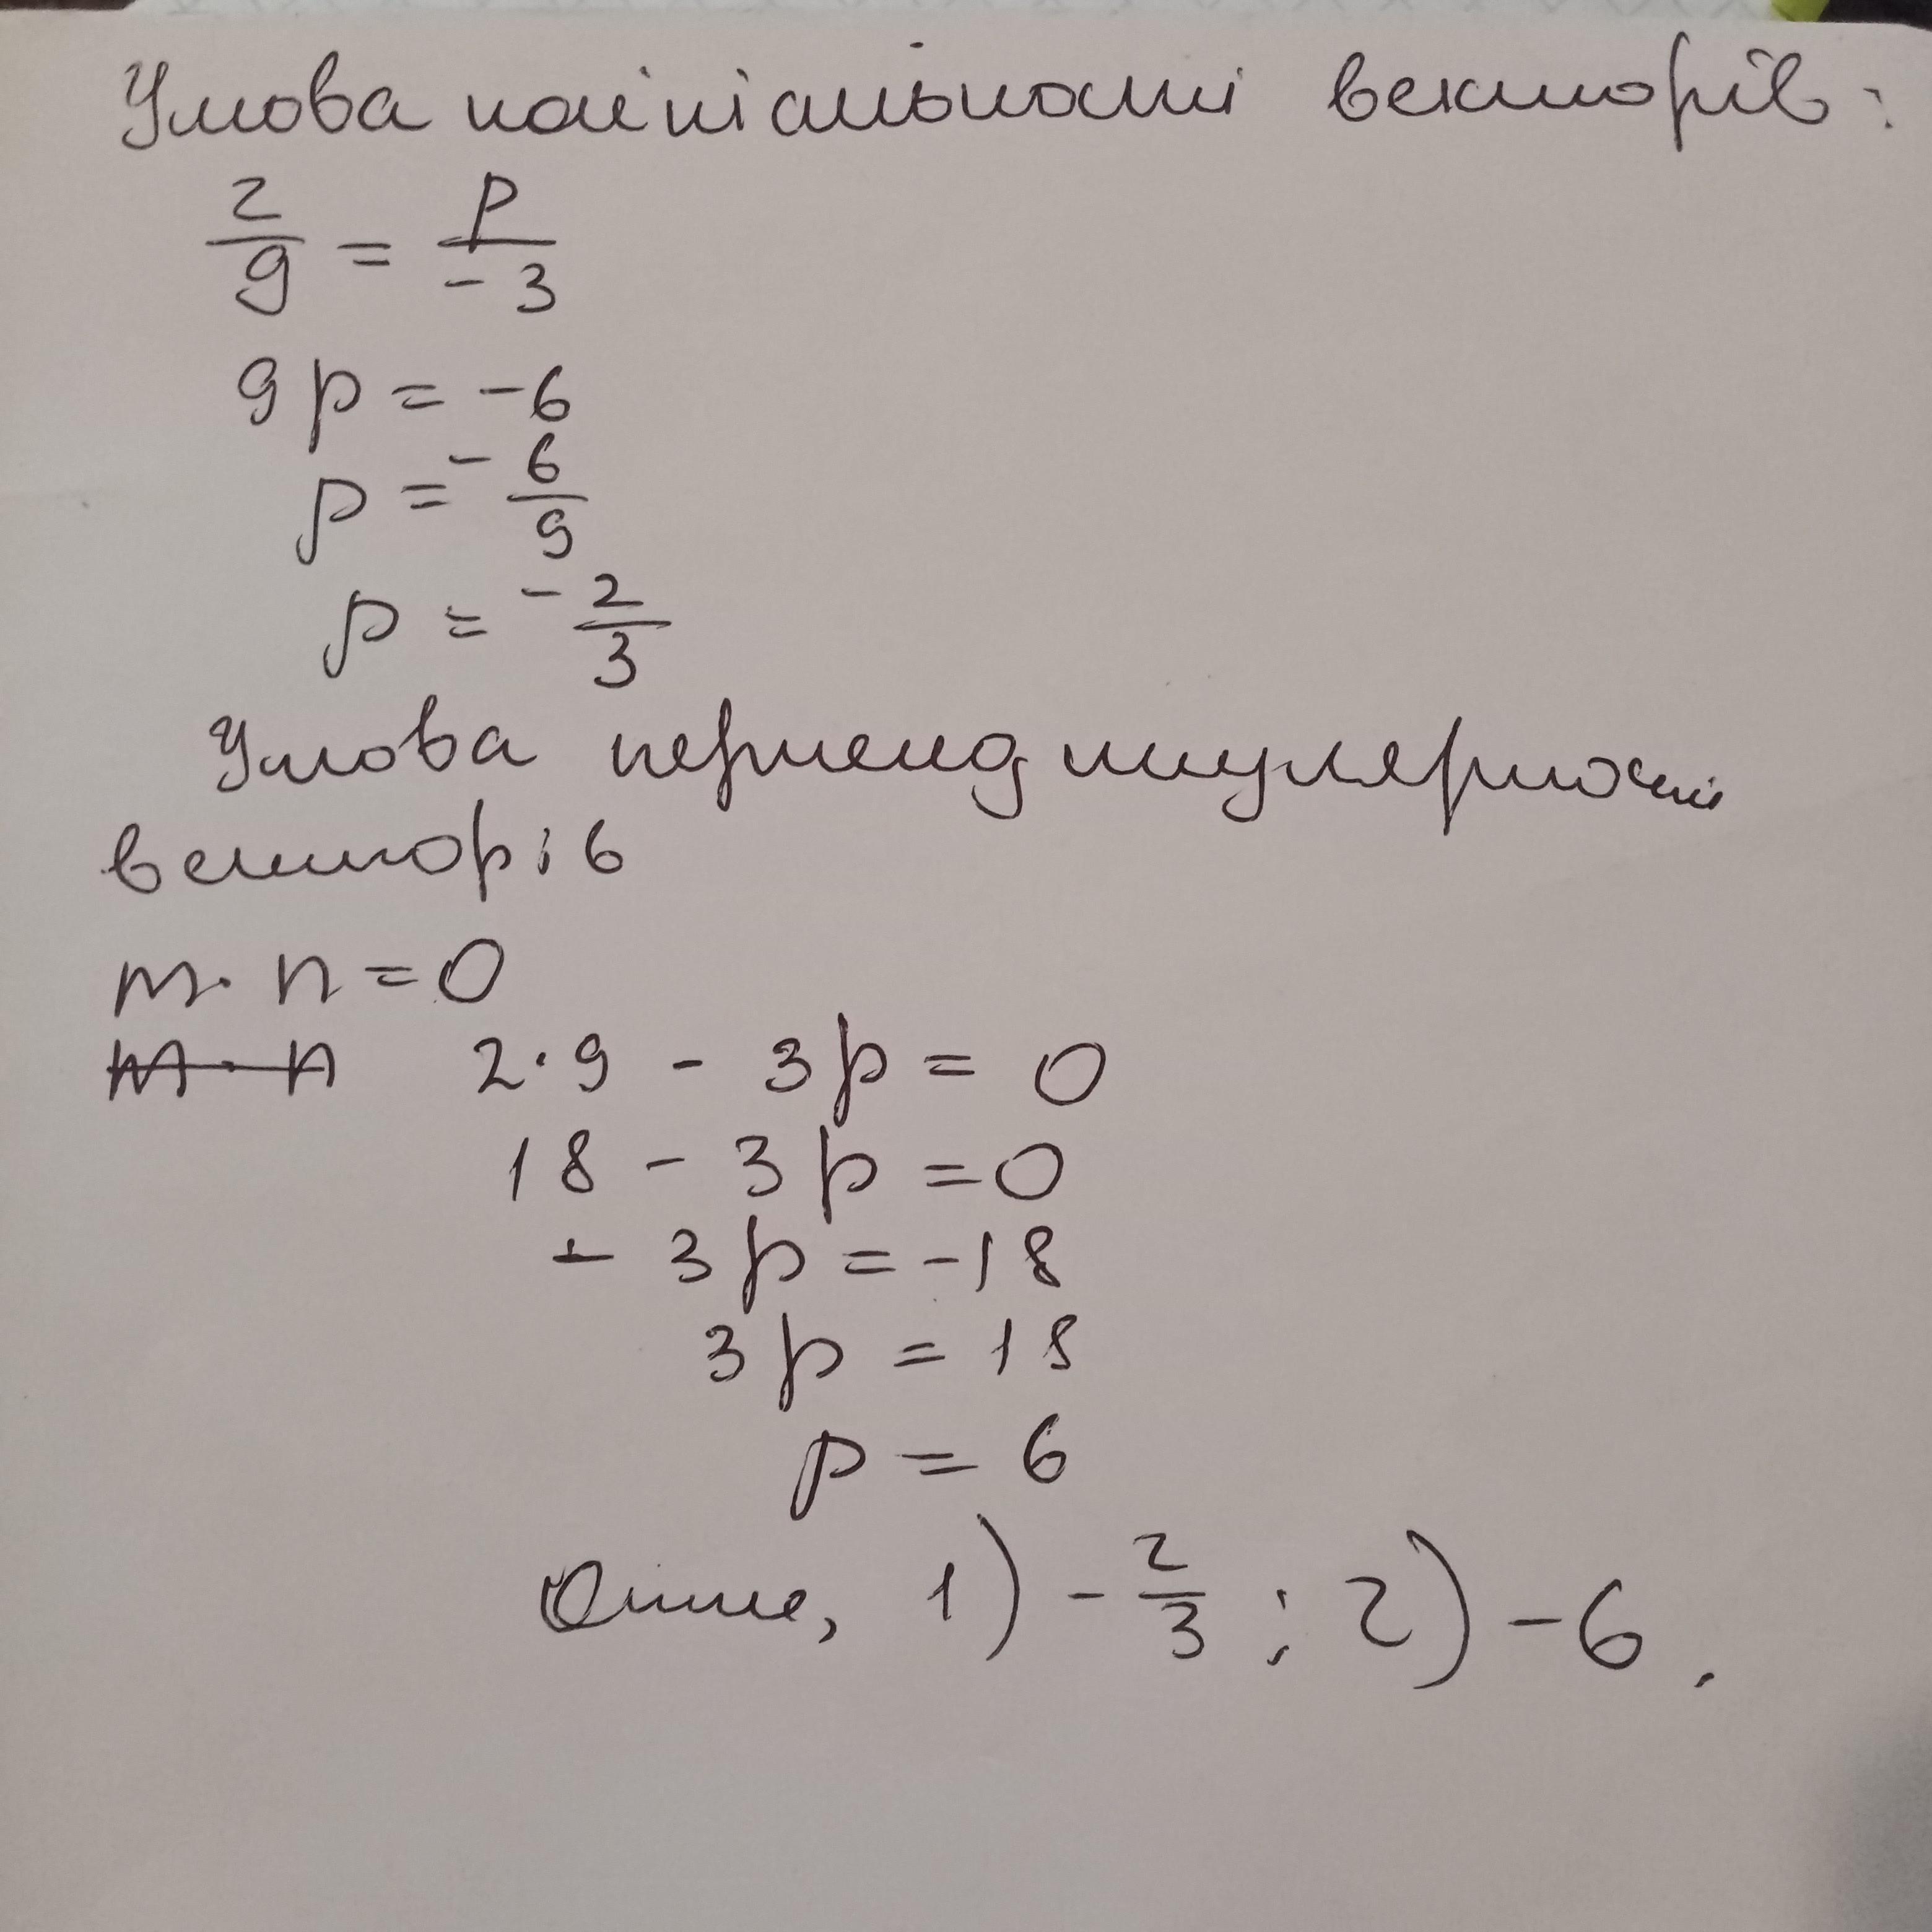 Умова колінеарності векторів:
2/9 = p/-3
9p = -6
p = -6/9
p = -2/3
Умова перпендикулярності
векторів
m · n = 0
m · n 2·9 - 3p = 0
18 - 3p = 0
- 3p = -18
3p = 18
p = 6
Отже, 1) -2/3 ; 2) -6.